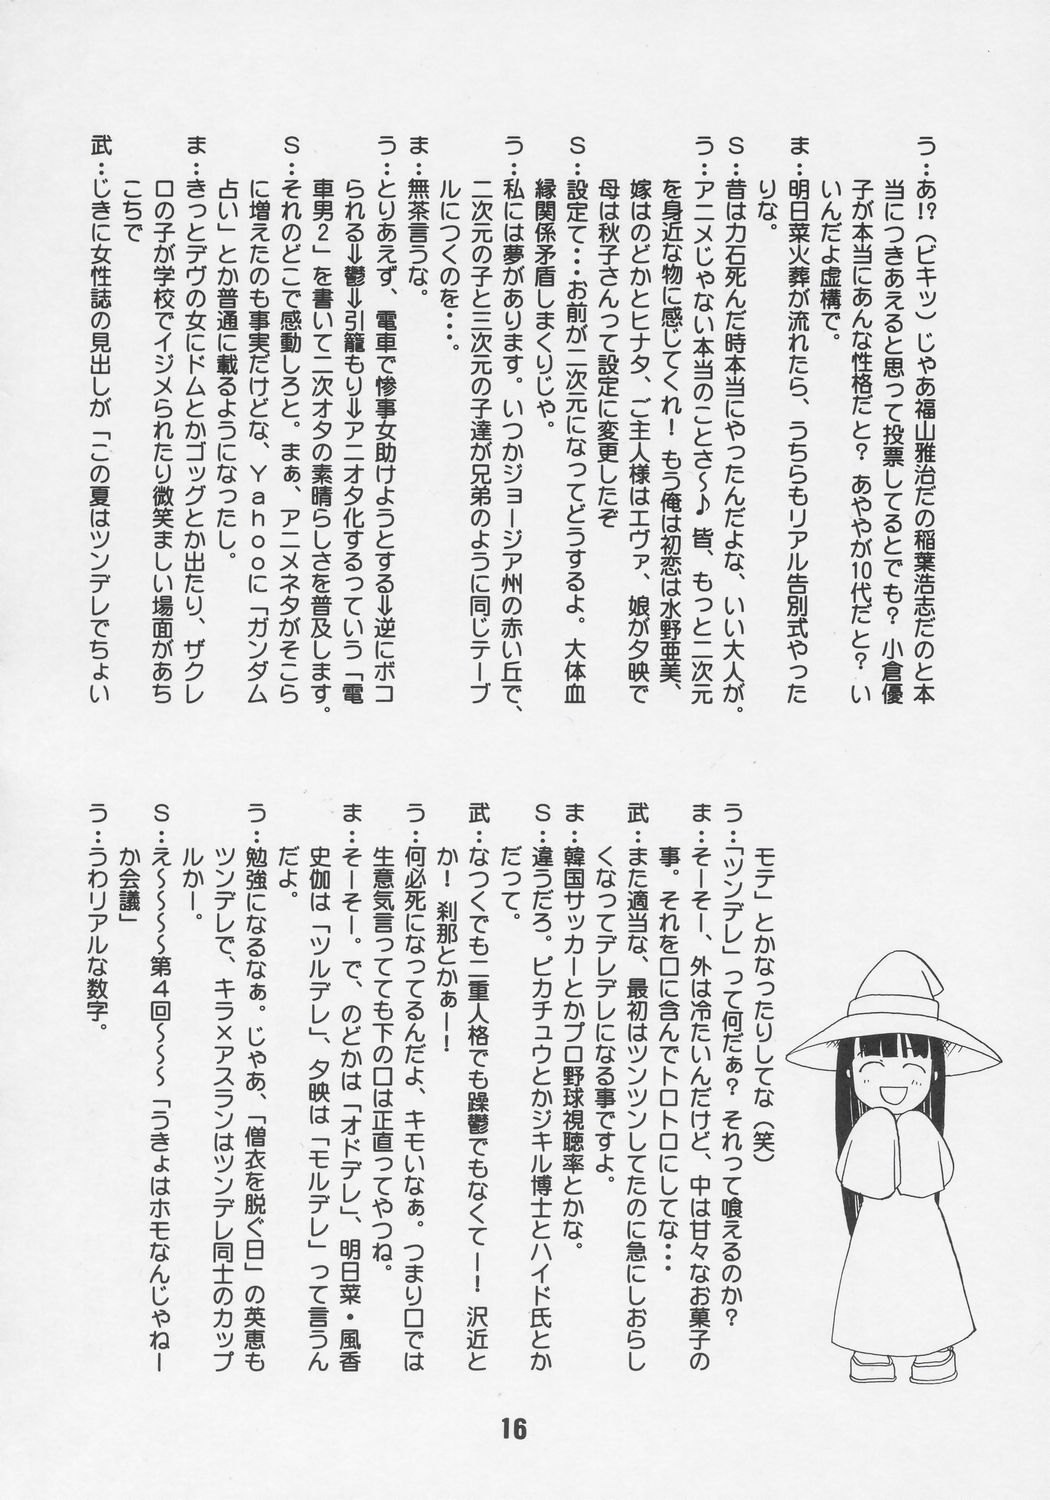 う：あ!?（ビキッ）じゃあ福山雅治だの稲葉浩志だのと本
当につきあえると思って投票してるとでも？小倉優
子が本当にあんな性格だと？あややが10代だと？い
いんだよ虚構で。
ま：明日菜火葬が流れたら、うちらもリアル告別式やった
りな。
S：昔は力石死んだ時本当にやったんだよな、いい大人が。
う：アニメじゃない本当のことさ～♪皆、もっと二次元
を身近な物に感じてくれ！もう俺は初恋は水野亜美、
嫁はのどかとヒナタ、ご主人様はエヴァ、娘が夕映で
母は秋子さんって設定に変更したぞ
S：設定て・・・お前が二次元になってどうするよ。大体血
縁関係矛盾しまくりじゃ。
う：私には夢があります。いつかジョージア州の赤い丘で、
二次元の子と三次元の子達が兄弟のように同じテーブ
ルにつくのを・・・。
ま：無茶言うな。
う：とりあえず、電車で惨事女助けようとする⇒逆にボコ
られる⇒鬱⇒引籠もり⇒アニオタ化するっていう「電
車男2」を書いて二次オタの素晴らしさを普及します。
S：それのどこで感動しろと。まぁ、アニメネタがそこら
に増えたのも事実だけどな、Yahooに「ガンダム
占い」とか普通に載るようになったし。
ま：きっとデヴの女にドムとかゴッグとか出たり、ザクレ
ロの子が学校でイジメられたり微笑ましい場面があち
こちで
武：じきに女性誌の見出しが「この夏はツンデレでちょい
モテ」とかなったりしてな（笑）
う：「ツンデレ」って何だぁ？それって喰えるのか？
ま：そーそー、外は冷たいんだけど、中は甘々なお菓子の
事。それを口に含んでトロトロにしてな・・・
武：また適当な、最初はツンツンしてたのに急にしおらし
くなってデレデレになる事ですよ。
ま：韓国サッカーとかプロ野球視聴率とかな。
S：違うだろ。ピカチュウとかジキル博士とハイド氏とか
だって。
武：なつくでも二重人格でも躁鬱でもなくてー！沢近と
か！刹那とかぁー！
う：何必死になってるんだよ、キモいなぁ。つまり口では
生意気言ってても下の口は正直ってやつね。
ま：そーそー。で、のどかは「オドデレ」、明日菜・風香
史伽は「ツルデレ」、夕映は「モルデレ」って言うん
だよ。
う：勉強になるなぁ。じゃあ、「僧衣を脱ぐ日」の英恵も
ツンデレで、キラ×アスランはツンデレ同士のカップ
ルかー。
S：え～～～～第4回～～～～「うきょはホモなんじゃねー
か会議」
う：うわリアルな数字。
16